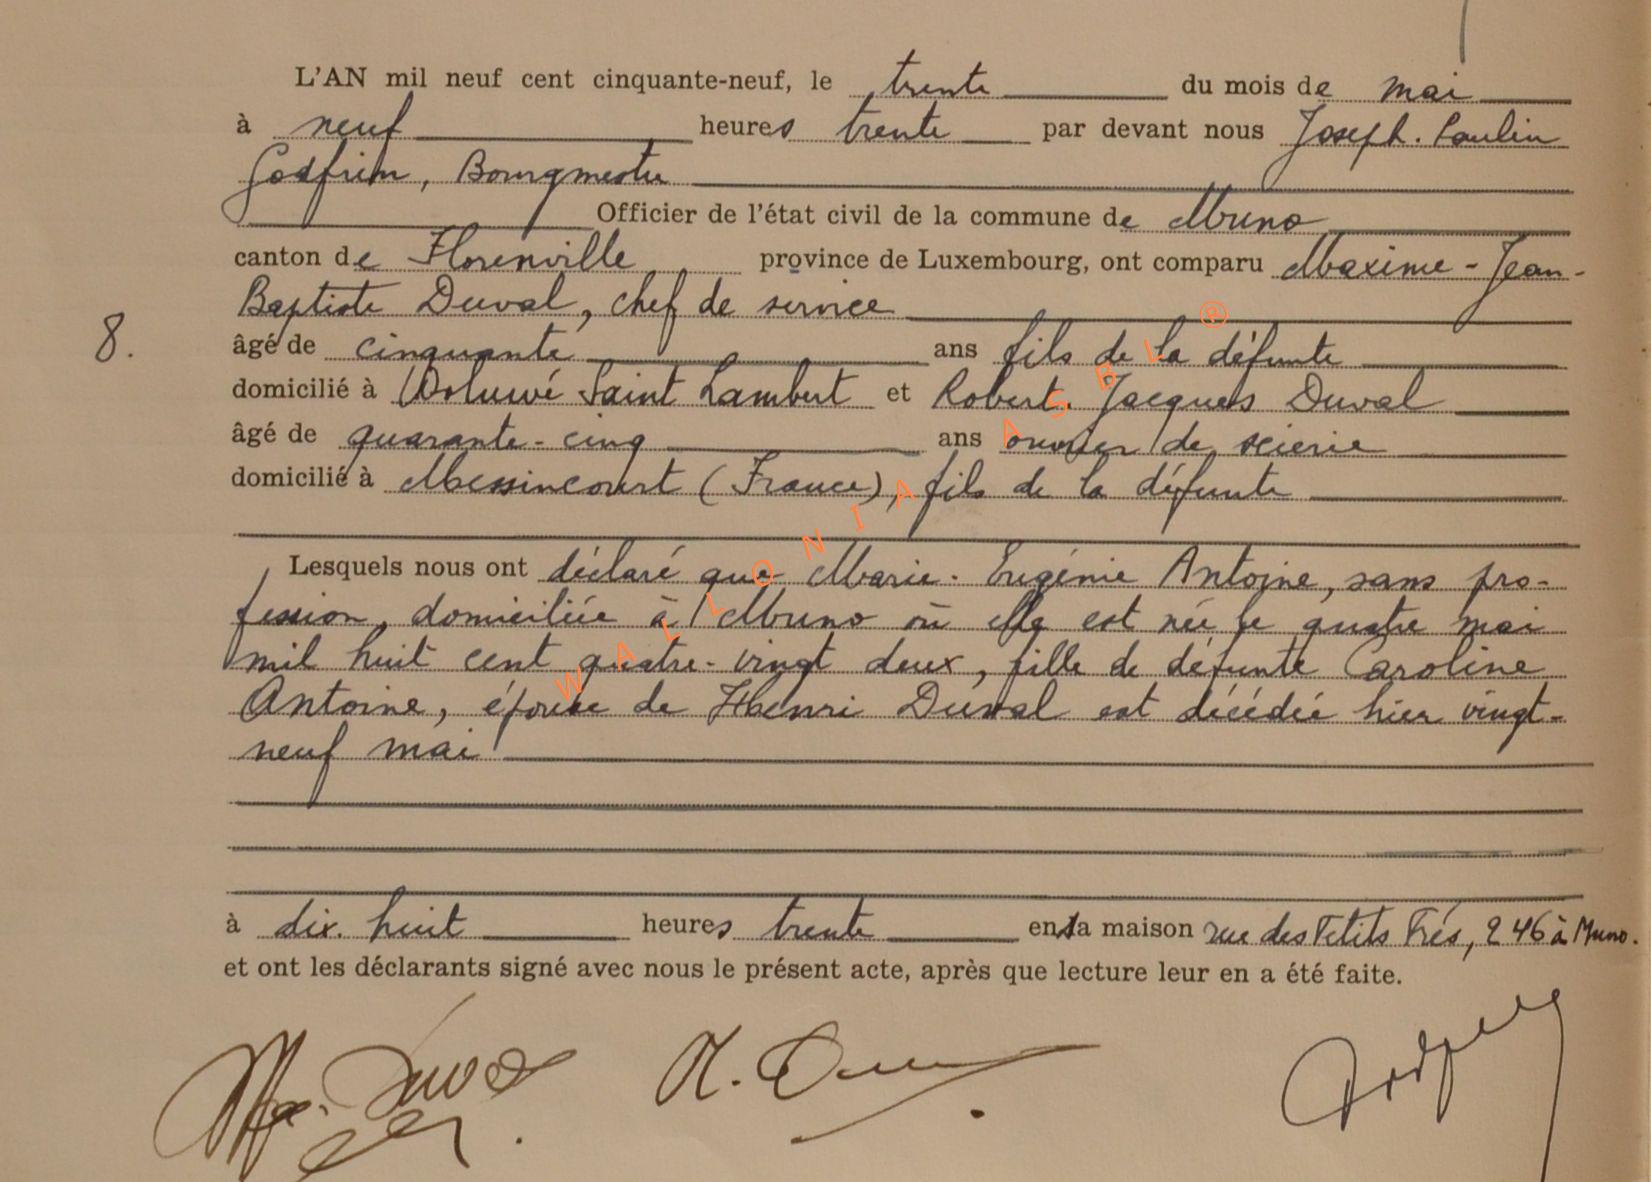 L'AN mil neuf cent cinquante-neuf, le trente du mois de mai
à neuf heures trente par devant nous Joseph. Paulin
Godfrin, Bourgmestre
Officier de l'état civil de la commune de Muno
canton de Florenville province de Luxembourg, ont comparu Maxime - Jean-
Baptiste Duval, chef de service
8. âgé de cinquante ans fils de la défunte
domicilié à Woluwé Saint Lambert et Robert. Jacques Duval
âgé de quarante-cinq ans ouvrier de scierie
domicilié à Messincourt (France), fils de la défunte
Lesquels nous ont déclaré que Marie. Eugénie Antoine, sans pro-
fession, domiciliée à Muno où elle est née le quatre mai
mil huit cent quatre-vingt deux, fille de défunte Caroline
Antoine, épouse de Henri Duval est décédée hier vingt-
neuf mai
à dix. huit heures trente en la maison rue des Petits Trés, 246 à Muno.
et ont les déclarants signé avec nous le présent acte, après que lecture leur en a été faite.
WALLONIA ASBL ®